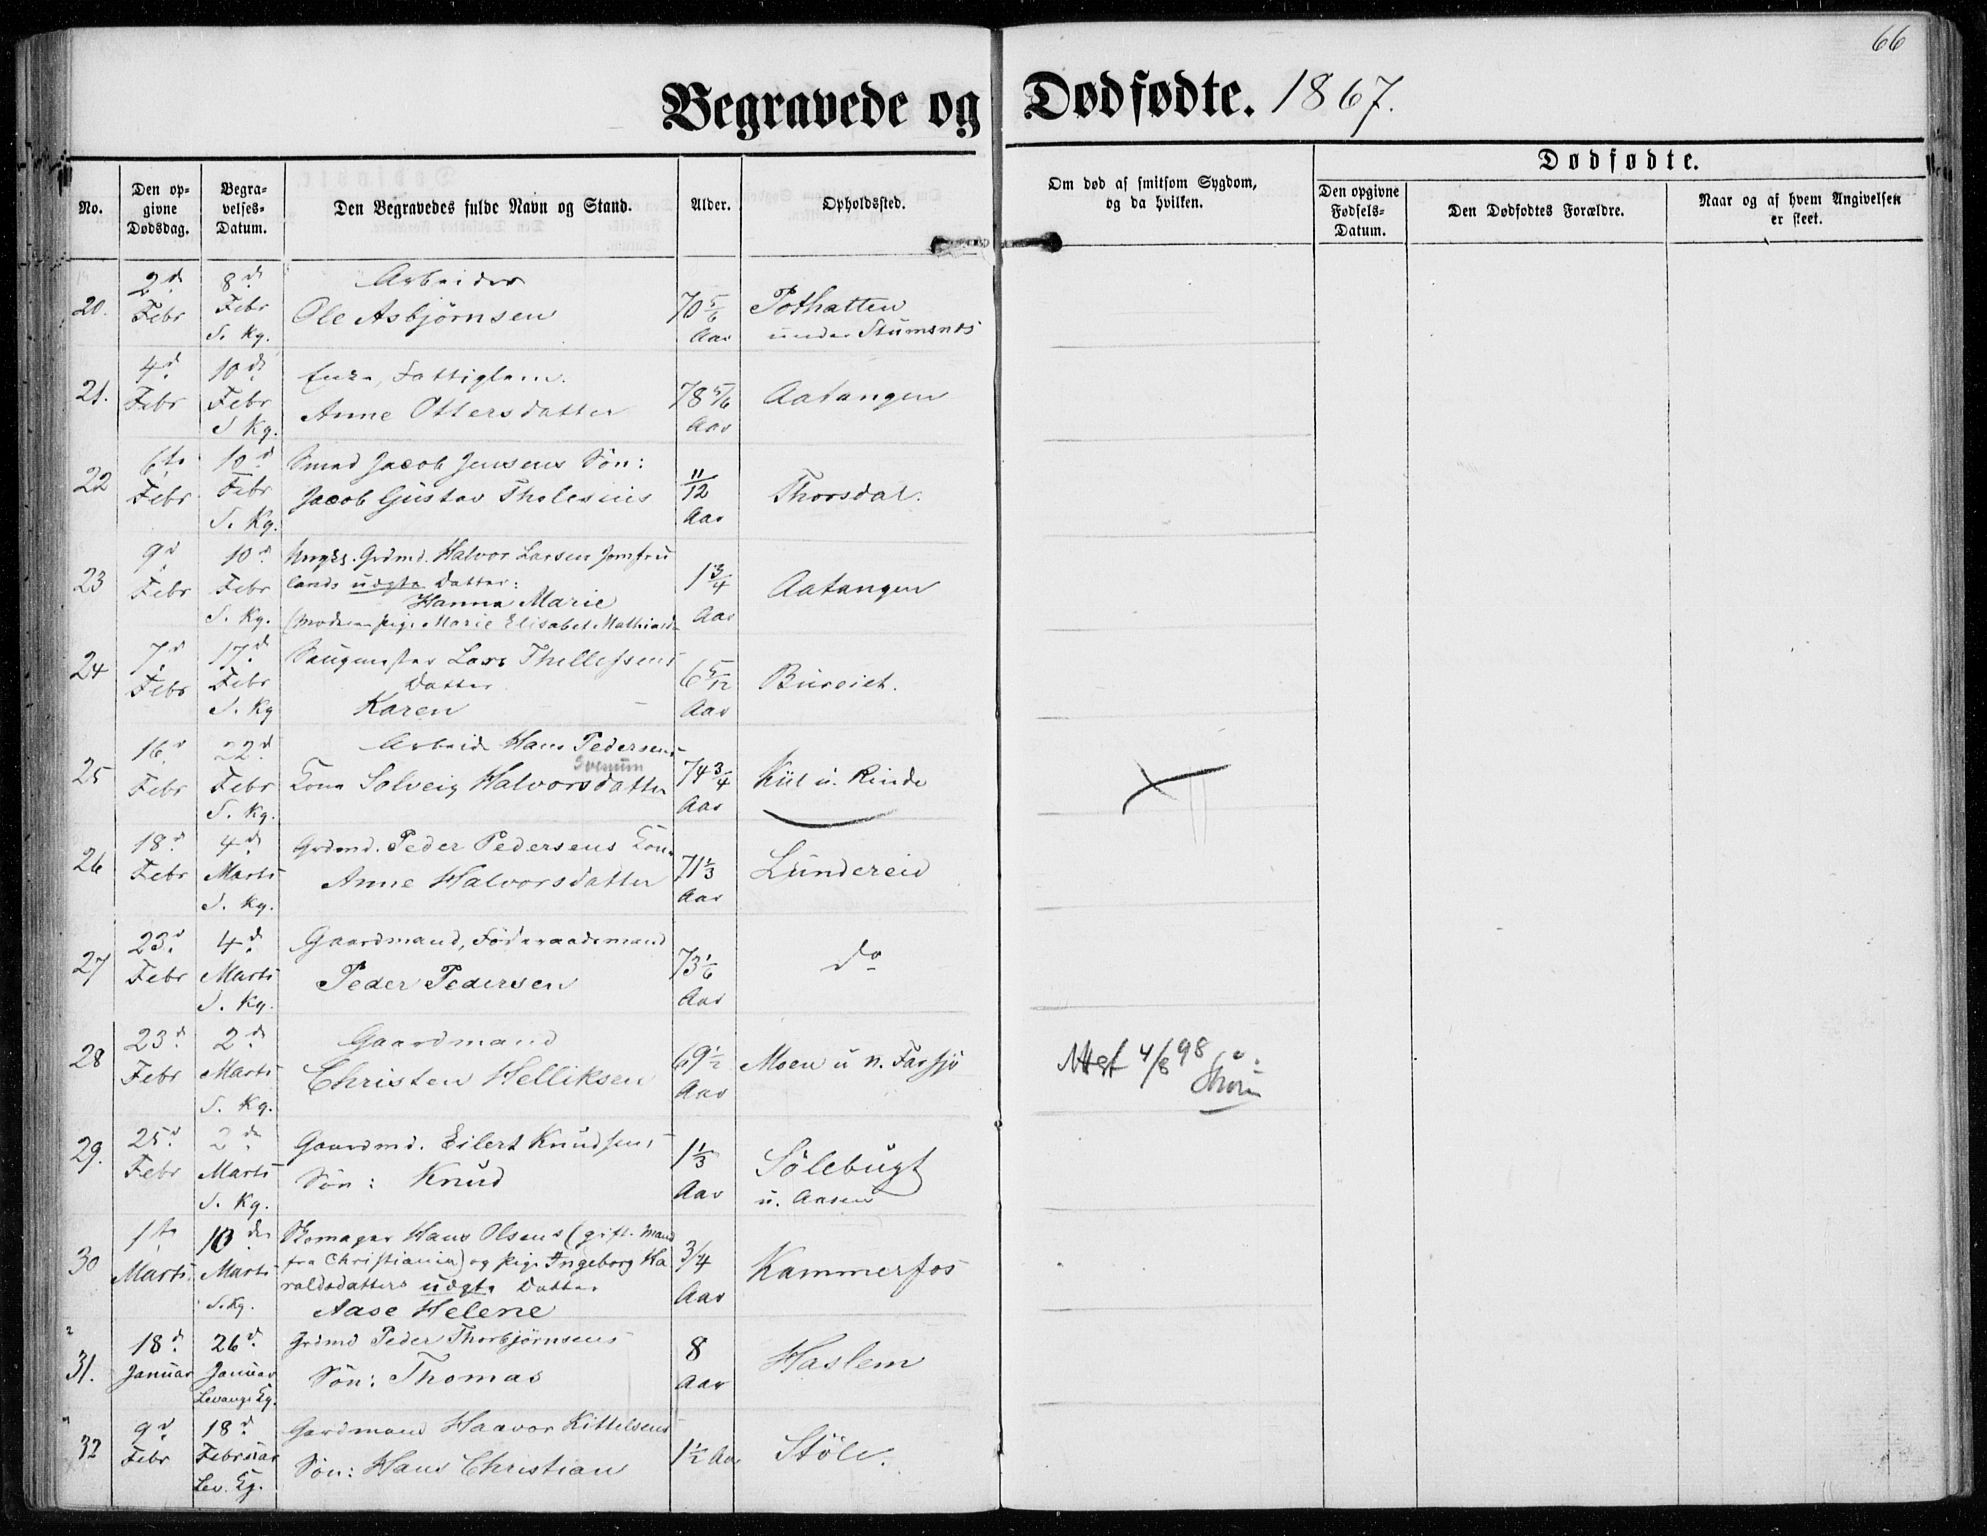 66
Begravede og Dødfødte. 1867.
No.
Den op-
givne
Dødsdag.
Begra-
velses-
Datum.
Den Begravedes fulde Navn og Stand.
Alder.
Opholdssted.
Om død af smitsom Sygdom,
og da hvilken.
Dødfødte.
Den opgivne
Fødsels-
Datum.
Den Dødfødtes Forældre.
Naar og af hvem Angivelsen
er skeet.
20. 2d Febr 8d Febr S. Kg.
Arbeider
Ole Asbjørnsen
70 5/6 Aar
under Stumsnes
21. 4d Febr 10de Febr S Kg.
Enke, Fattiglem.
Anne Ottersdatter
78 5/6 Aar
Aatangen
22 6te Febr 10d Febr S. Kg.
Smed Jacob Jensens Søn:
Jacob Gustav
11/12 Aar
Thorsdal.
23 9d Febr 10d Febr S. Kg.
Ungks. Grdmd. Halvor Larsen Jomfru
lands udgte Datter:
Hanna Marie
(Moderen Pige Marie Elisabet Mathiasd
1 3/4 Aar
Aatangen
24 7d Febr 17d Febr S. Kg
Saugmester Lars Thellefsens
Datter
Karen
6 5/12 Aar
Bureiet.
25 16d Febr 22d Febr S. Kg.
Arbeid. Hans Pedersens
Kone Solveig Halvorsdatter
74 3/4 Aar
Kiil u. Rinde
26 18d Febr 4d Marts S. Kg.
Grdmd. Peder Pedersens Kone
Anne Halvorsdatter
71 1/3 Aar
Lundereid
27 23d Febr 4d Marts S. Kg.
Gaardmand, Føderaadsmand
Peder Pedersen
73 1/6 Aar
do
28 23d Febr 2d Marts S. Kg.
Gaardmand
Christen Helliksen
69 1/2 Aar
Moen u n. Farsjø
4/8 98
29. 25d Febr 2de Marts S. Kg.
Gaardmd. Eilert Knudsens
Søn: Knud
1 1/3 Aar
Sölebugt
u. Aasen
30 1ste Marts 10de Marts S. Kg.
Skomager Hans Olsens (gift Mand
fra Christiania) og Pige Ingeborg Ha
raldsdatters udgte Datter
Aase Helene
3/4 Aar
Kammerfos
31. 18d Januar 26d Januar Levangs Kg.
Grdmd Peder Thorbjørnsens
Søn: Thomas
8 Aar
Haslem
32 9d Febr 18d Februar Lev. Kg.
Gardmand Haavor Kittelsens
Søn: Hans Christian
1 1/2 Aar
Støle.